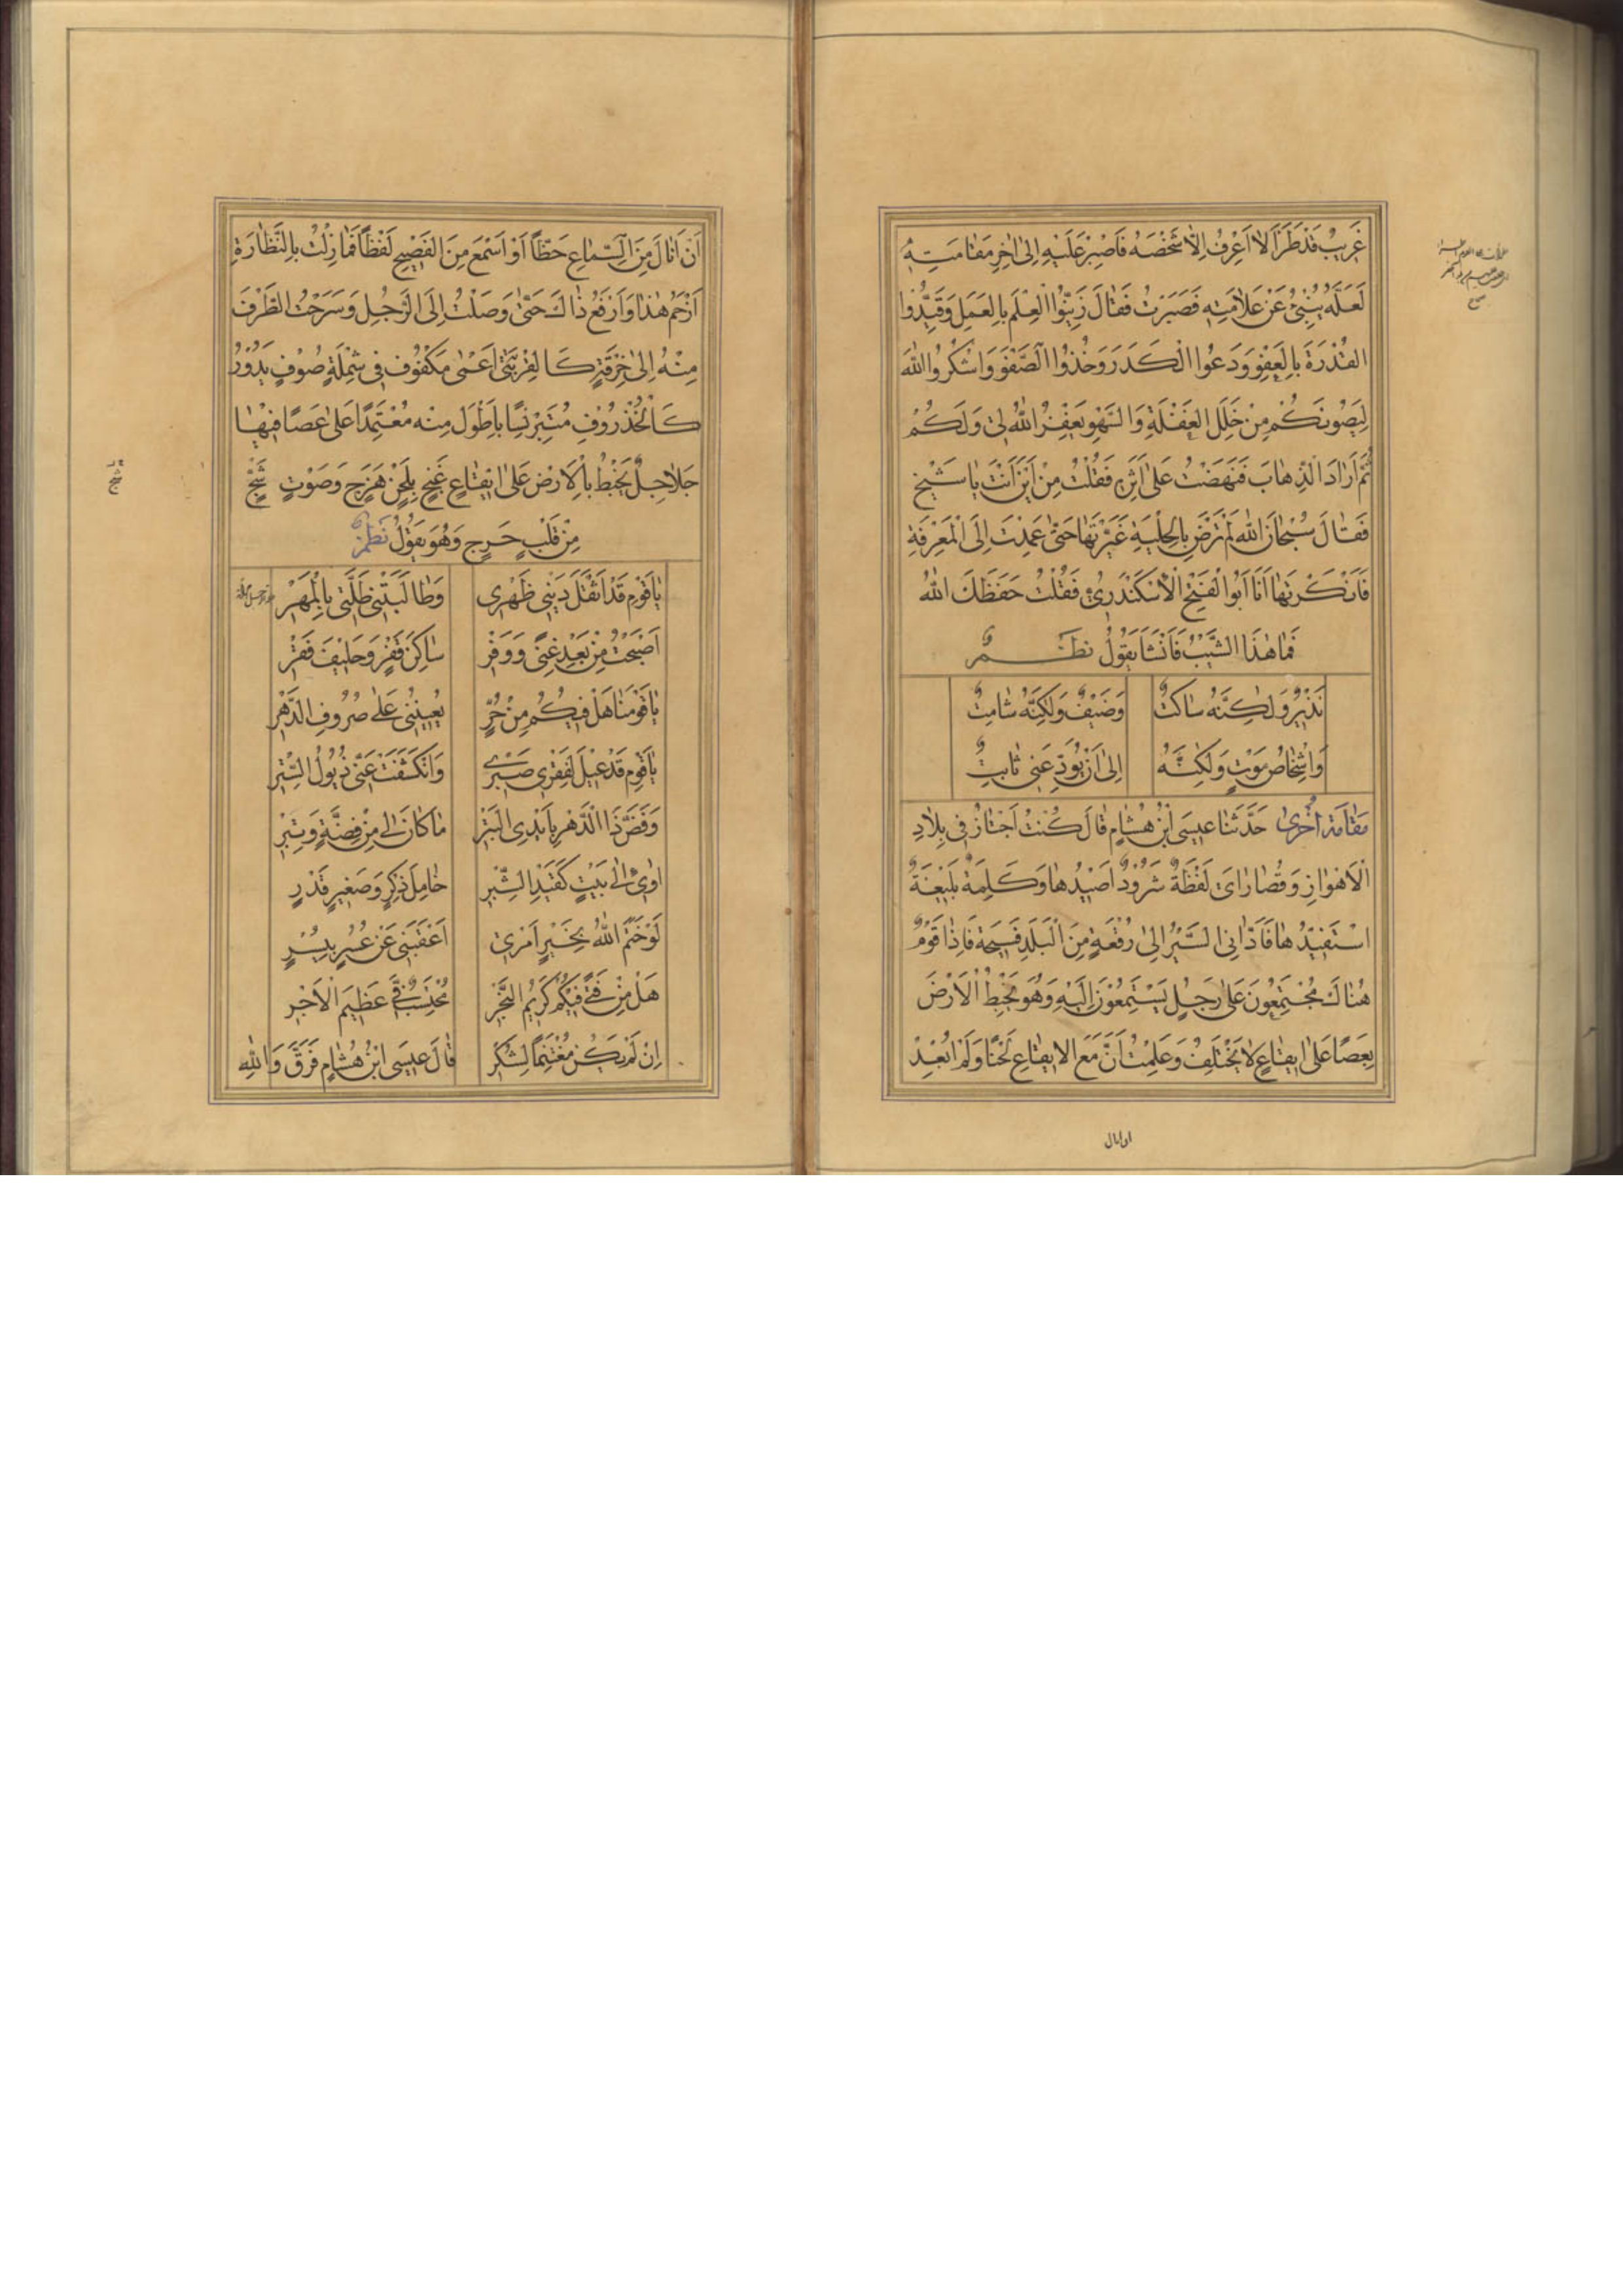 غَرِيبٌ قَدْ طَرَأَ لَا اَعْرِفُ اِلَّا شَخْصَهُ فَاصْبِرْ عَلَيْهِ اِلىٰ اٰخِرِ مَقَامَتِهِ
لَعَلَّهُ يُنْبِئُ عَنْ عَلَامَتِهِ فَصَبَرْتُ فَقَالَ زَيِّنُوا الْعِلْمَ بِالْعَمَلِ وَقَيِّدُوا
الْقُدْرَةَ بِالْعَفْوِ وَدَعُوا الْكَدَرَ وَخُذُوا الصَّفْوَ وَاشْكُرُوا اللّٰهَ
لِيَصُونَكُمْ مِنْ خَلَلِ الْغَفْلَةِ وَالسَّهْوِ يَغْفِرُ اللّٰهُ لِي وَلَكُمْ
ثُمَّ اَرَادَ الذِّهَابَ فَنَهَضْتُ عَلىٰ اَثَرِهِ فَقُلْتُ مِنْ اَيْنَ اَنْتَ يَا شَيْخُ
فَقَالَ سُبْحَانَ اللّٰهِ لَمْ تَرْضَ بِالْحِلْيَةِ غَيَّرْتَهَا حَتّىٰ عَمِدْتَ اِلَى الْمَعْرِفَةِ
فَاَنْكَرْتَهَا اَنَا اَبُو الْفَتْحِ الْاِسْكَنْدَرِيُّ فَقُلْتُ حَفِظَكَ اللّٰهُ
فَمَا هٰذَا الشَّيْبُ فَاَنْشَأَ يَقُولُ نَظْمٌ
نَذِيرٌ وَلٰكِنَّهُ سَاكِتٌ وَضَيْفٌ وَلٰكِنَّهُ شَامِتٌ
وَاِشْخَاصُ مَوْتٍ وَلٰكِنَّهُ اِلىٰ اَنْ يُوَدِّعَنِي ثَابِتٌ
مَقَامَة اُخْرىٰ حَدَّثَنَا عِيسَى ابْنُ هِشَامٍ قَالَ كُنْتُ اَجْتَازُ فِي بِلَادِ
الْاَهْوَازِ وَقُصَارَايَ لَفْظَةٌ شَرُودٌ اَصِيدُهَا وَكَلِمَةٌ بَلِيغَةٌ
اَسْتَفِيدُهَا فَاَدَّانِي السَّيْرُ اِلىٰ رُقْعَةٍ مِنَ الْبَلَدِ فَسِيحَةٍ فَاِذَا قَوْمٌ
هُنَاكَ مُجْتَمِعُونَ عَلىٰ رَجُلٍ يَسْتَمِعُونَ اِلَيْهِ وَهُوَ يَخْبِطُ الْاَرْضَ
بِعَصًا عَلىٰ اِيقَاعٍ لَا يَخْتَلِفُ وَعَلِمْتُ اَنَّ مَعَ الْاِيقَاعِ لَحْنًا وَلَمْ اُبْعِدْ
اَنْ اَنَالَ مِنَ السَّمَاعِ حَظًّا اَوْ اَسْمَعَ مِنَ الْفَصِيحِ لَفْظًا فَمَا زِلْتُ بِالنَّظَّارَةِ
اَزْحَمُ هٰذَا وَاَرْفَعُ ذَاكَ حَتّىٰ وَصَلْتُ اِلَى الرَّجُلِ وَسَرَحْتُ الطَّرْفَ
مِنْهُ اِلىٰ حُزُقَّةٍ كَالْقَرَنْبىٰ اَعْمىٰ مَكْفُوفٍ فِي شَمْلَةِ صُوفٍ يَدُورُ
كَالْخُذْرُوفِ مُتَبَرْنِسًا بِاَطْوَلَ مِنْهُ مُعْتَمِدًا عَلىٰ عَصًا فِيهَا
جَلَاجِلُ يَخْبِطُ بِهَا الْاَرْضَ عَلىٰ اِيقَاعٍ غَنِجٍ بِلَحْنٍ هَزِجٍ وَصَوْتٍ شَجٍ
مِنْ قَلْبٍ حَرِجٍ وَهُوَ يَقُولُ نَظْمٌ
يَا قَوْمِ قَدْ اَثْقَلَ دَيْنِي ظَهْرِي وَطَالَبَتْنِي طَلَّتِي بِالْمَهْرِ
اَصْبَحْتُ مِنْ بَعْدِ غِنًى وَوَفْرِ سَاكِنَ قَفْرٍ وَحَلِيفَ فَقْرٍ
يَا قَوْمَنَا هَلْ فِيكُمْ مِنْ حُرٍّ يُعِينُنِي عَلىٰ صُرُوفِ الدَّهْرِ
يَا قَوْمِ قَدْ عِيلَ لِفَقْرِي صَبْرِي وَانْكَشَفَتْ عَنِّي ذُيُولُ السِّتْرِ
وَفَضَّ ذَا الدَّهْرُ بِاَيْدِي الْبَتْرِ مَا كَانَ لِي مِنْ فِضَّةٍ وَتِبْرٍ
اٰوِي اِلىٰ بَيْتٍ كَقِيدِ الشِّبْرِ خَامِلَ ذِكْرٍ وَصَغِيرَ قَدْرٍ
لَوْ خَتَمَ اللّٰهُ بِخَيْرٍ اَمْرِي اَعْقَبَنِي عَنْ عُسْرٍ بِيُسْرٍ
هَلْ مِنْ فَتًى فِيكُمْ كَرِيمِ النَّجْرِ مُحْتَسِبٍ فِيَّ عَظِيمَ الْاَجْرِ
اِنْ لَمْ يَكُنْ مُغْتَنِمًا لِشُكْرٍ قَالَ عِيسَى ابْنُ هِشَامٍ فَرَقَّ وَاللّٰهِ